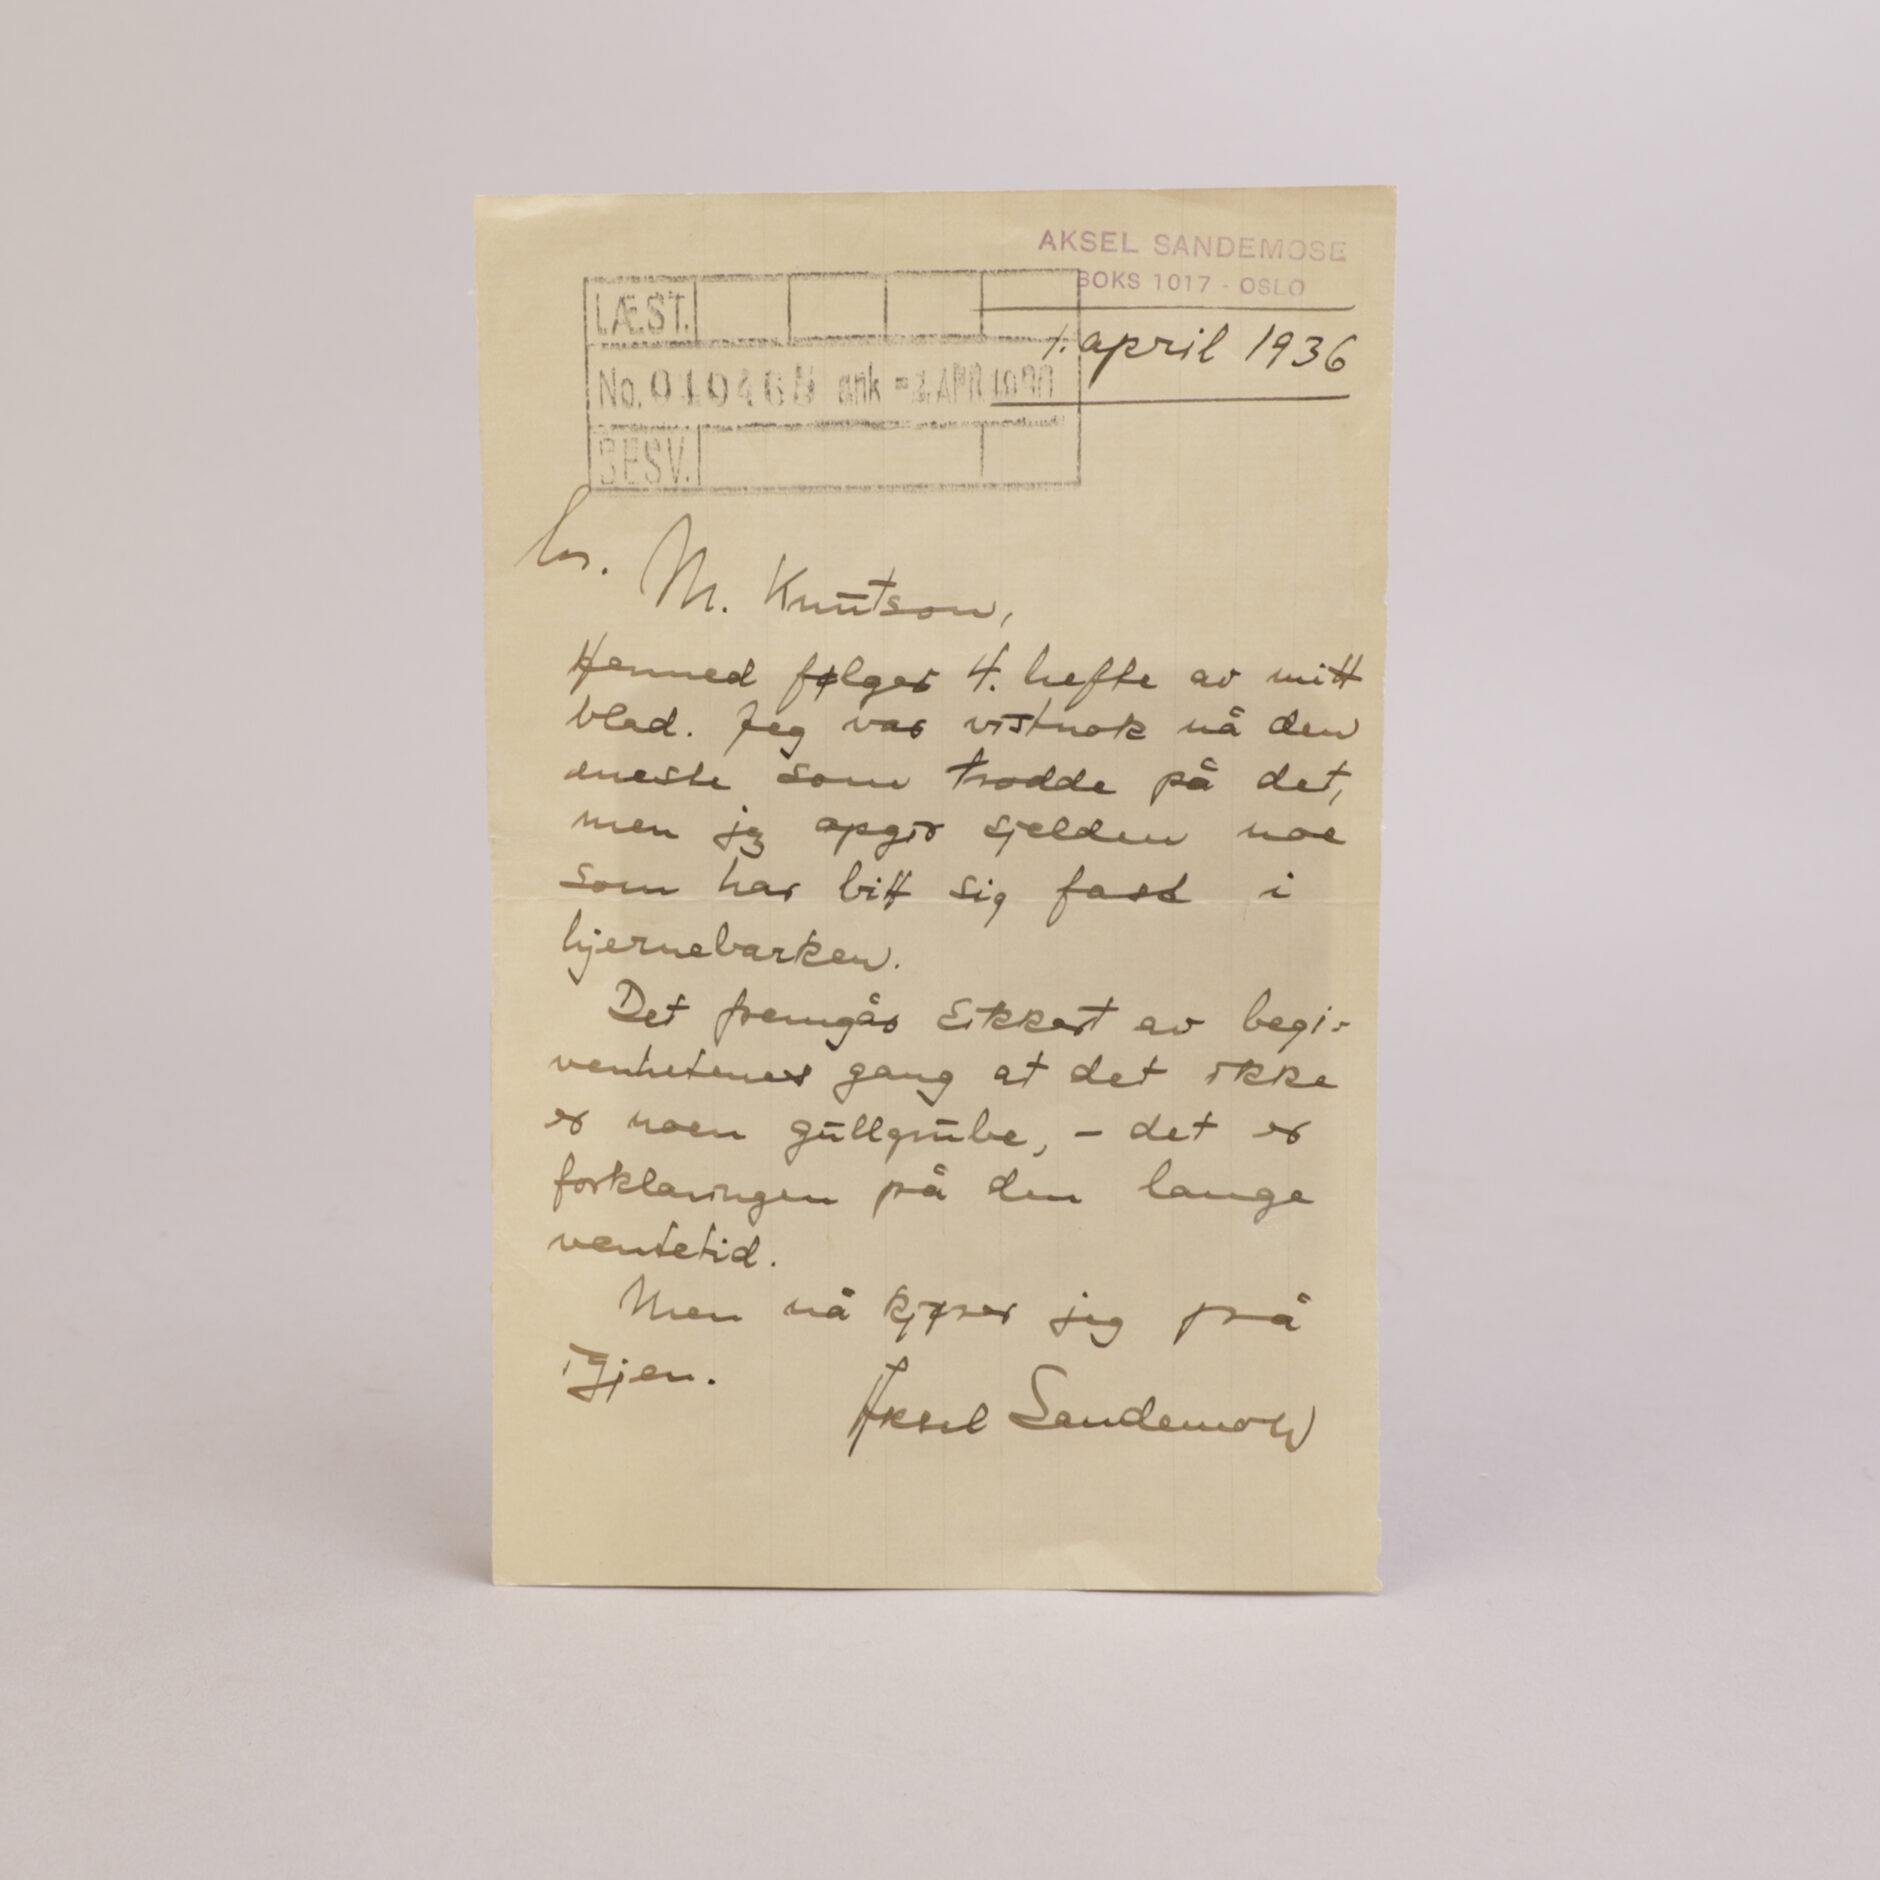 AKSEL SANDEMOSE
BOKS 1017 - OSLO
1. april 1936
LÆST.
No. 010465 ank = 2. APR.
BESV.
hr. M. Knutson,
Hermed følger 4. hefte av mitt
blad. Jeg var vistnok nå den
eneste som trodde på det,
men jeg opgir sjelden noe
som har bitt sig fast i
hjernebarken.
Det fremgår sikkert av begi-
venhetenes gang at det ikke
er noen gullgrube, - det er
forklaringen på den lange
ventetid.
Men nå kjører jeg på
igjen.
Aksel Sandemose